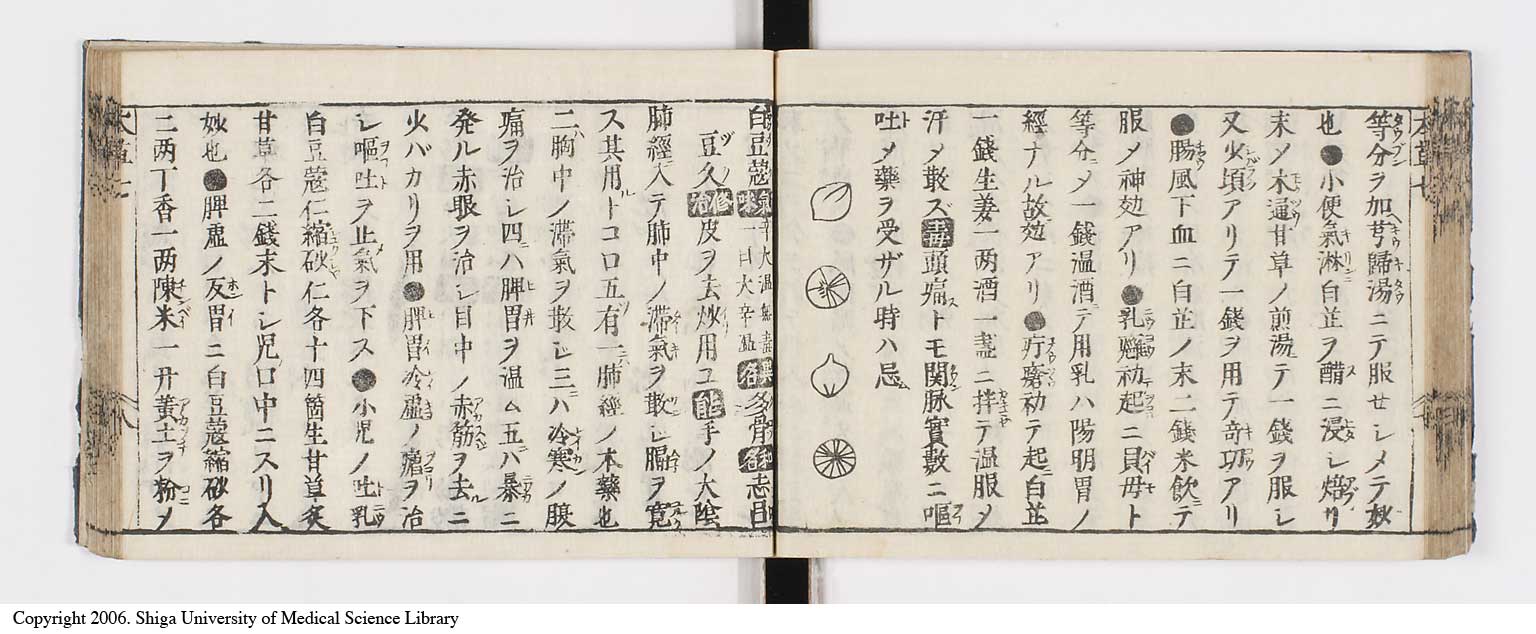 等分ヲ加芎歸湯ニテ服セシメテ妙
也●小便氣淋白芷ヲ醋ニ浸シ焙リ
末メ木通甘草ノ煎湯ニテ一錢ヲ服シ
又少頃アリテ一錢ヲ用テ奇功アリ
●腸風下血ニ白芷ノ末二錢米飲ニテ
服メ神効アリ●乳癰初起ニ貝母ト
等分ニメ一錢温酒ニテ用乳ハ陽明胃ノ
經ナル故効アリ●疔瘡初テ起ニ白芷
一錢生姜一两酒一盞ニ拌テ温服メ
汗メ散ズ毒頭痛ストモ関脉實數ニ嘔
吐メ藥ヲ受ザル時ハ忌
白豆蔲氣味辛大温無毒一曰大辛温異名多骨和名志呂
豆久修治皮ヲ去炒用ユ能手ノ大陰
肺經ニ入テ肺中ノ滯氣ヲ散シ膈ヲ寛
ス其用ルトコロ五ツ有一ニハ肺經ノ本藥也
二ニハ胸中ノ滯氣ヲ散シ三ニハ冷寒ノ腹
痛ヲ治シ四ニハ脾胃ヲ温ム五ニハ暴ニ
発ル赤眼ヲ治シ目中ノ赤筋ヲ去ルニ
少バカリヲ用●脾胃冷虚ノ瘧ヲ治
シ嘔吐ヲ止メ氣ヲ下ス●小児ノ吐乳
白豆蔲仁縮砂仁各十四箇生甘草炙
甘草各二錢末トシ児ノ口中ニスリ入
妙也●脾虚ノ反胃ニ白豆蔲縮砂各
二两丁香一两陳米一升黄土ヲ粉ニメ
Copyright 2006. Shiga University of Medical Science Library